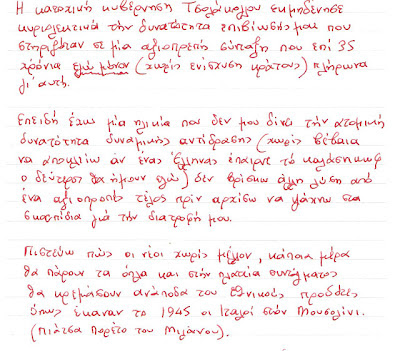 Η κατοχική κυβέρνηση Τσολάκογλου εκμηδένησε
κυριολεκτικά την δυνατότητα επιβίωσής μου που
στηριζόταν σε μία αξιοπρεπή σύνταξη που επί 35
χρόνια εγώ μόνον (χωρίς ενίσχυση κράτους) πλήρωνα
γι' αυτή.
Επειδή έχω μία ηλικία που δεν μου δίνει την ατομική
δυνατότητα δυναμικής αντίδρασης (χωρίς βέβαια
να αποκλείω αν ένας Έλληνας έπαιρνε το καλάσνικωφ
ο δεύτερος θα ήμουν εγώ) δεν βρίσκω άλλη λύση από
ένα αξιοπρεπές τέλος πριν αρχίσω να ψάχνω στα
σκουπίδια για την διατροφή μου.
Πιστεύω πως οι νέοι χωρίς μέλλον, κάποια μέρα
θα πάρουν τα όπλα και στην πλατεία Συντάγματος
θα κρεμάσουν ανάποδα τους εθνικούς προδότες
όπως έκαναν το 1945 οι Ιταλοί στον Μουσολίνι.
(Πιάτσα Πορέτο του Μιλάνου).